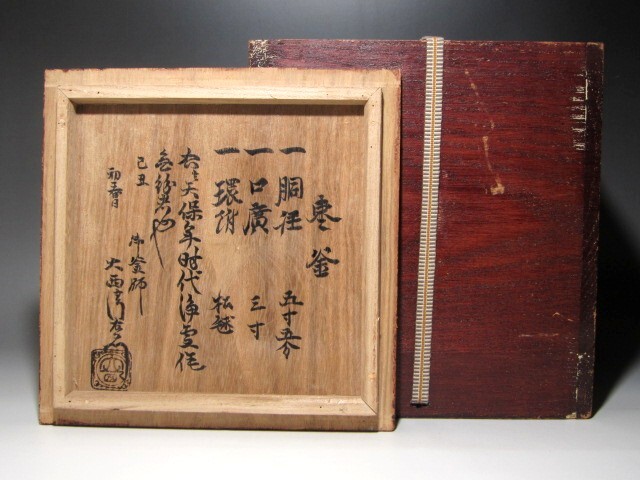 棗釜
一 胴径 五寸五分
一 口廣 三寸
一 環附 松毬
右者天保年時代浄雪作
無紛者也
己丑
初春
御釜師
大西清右衛門